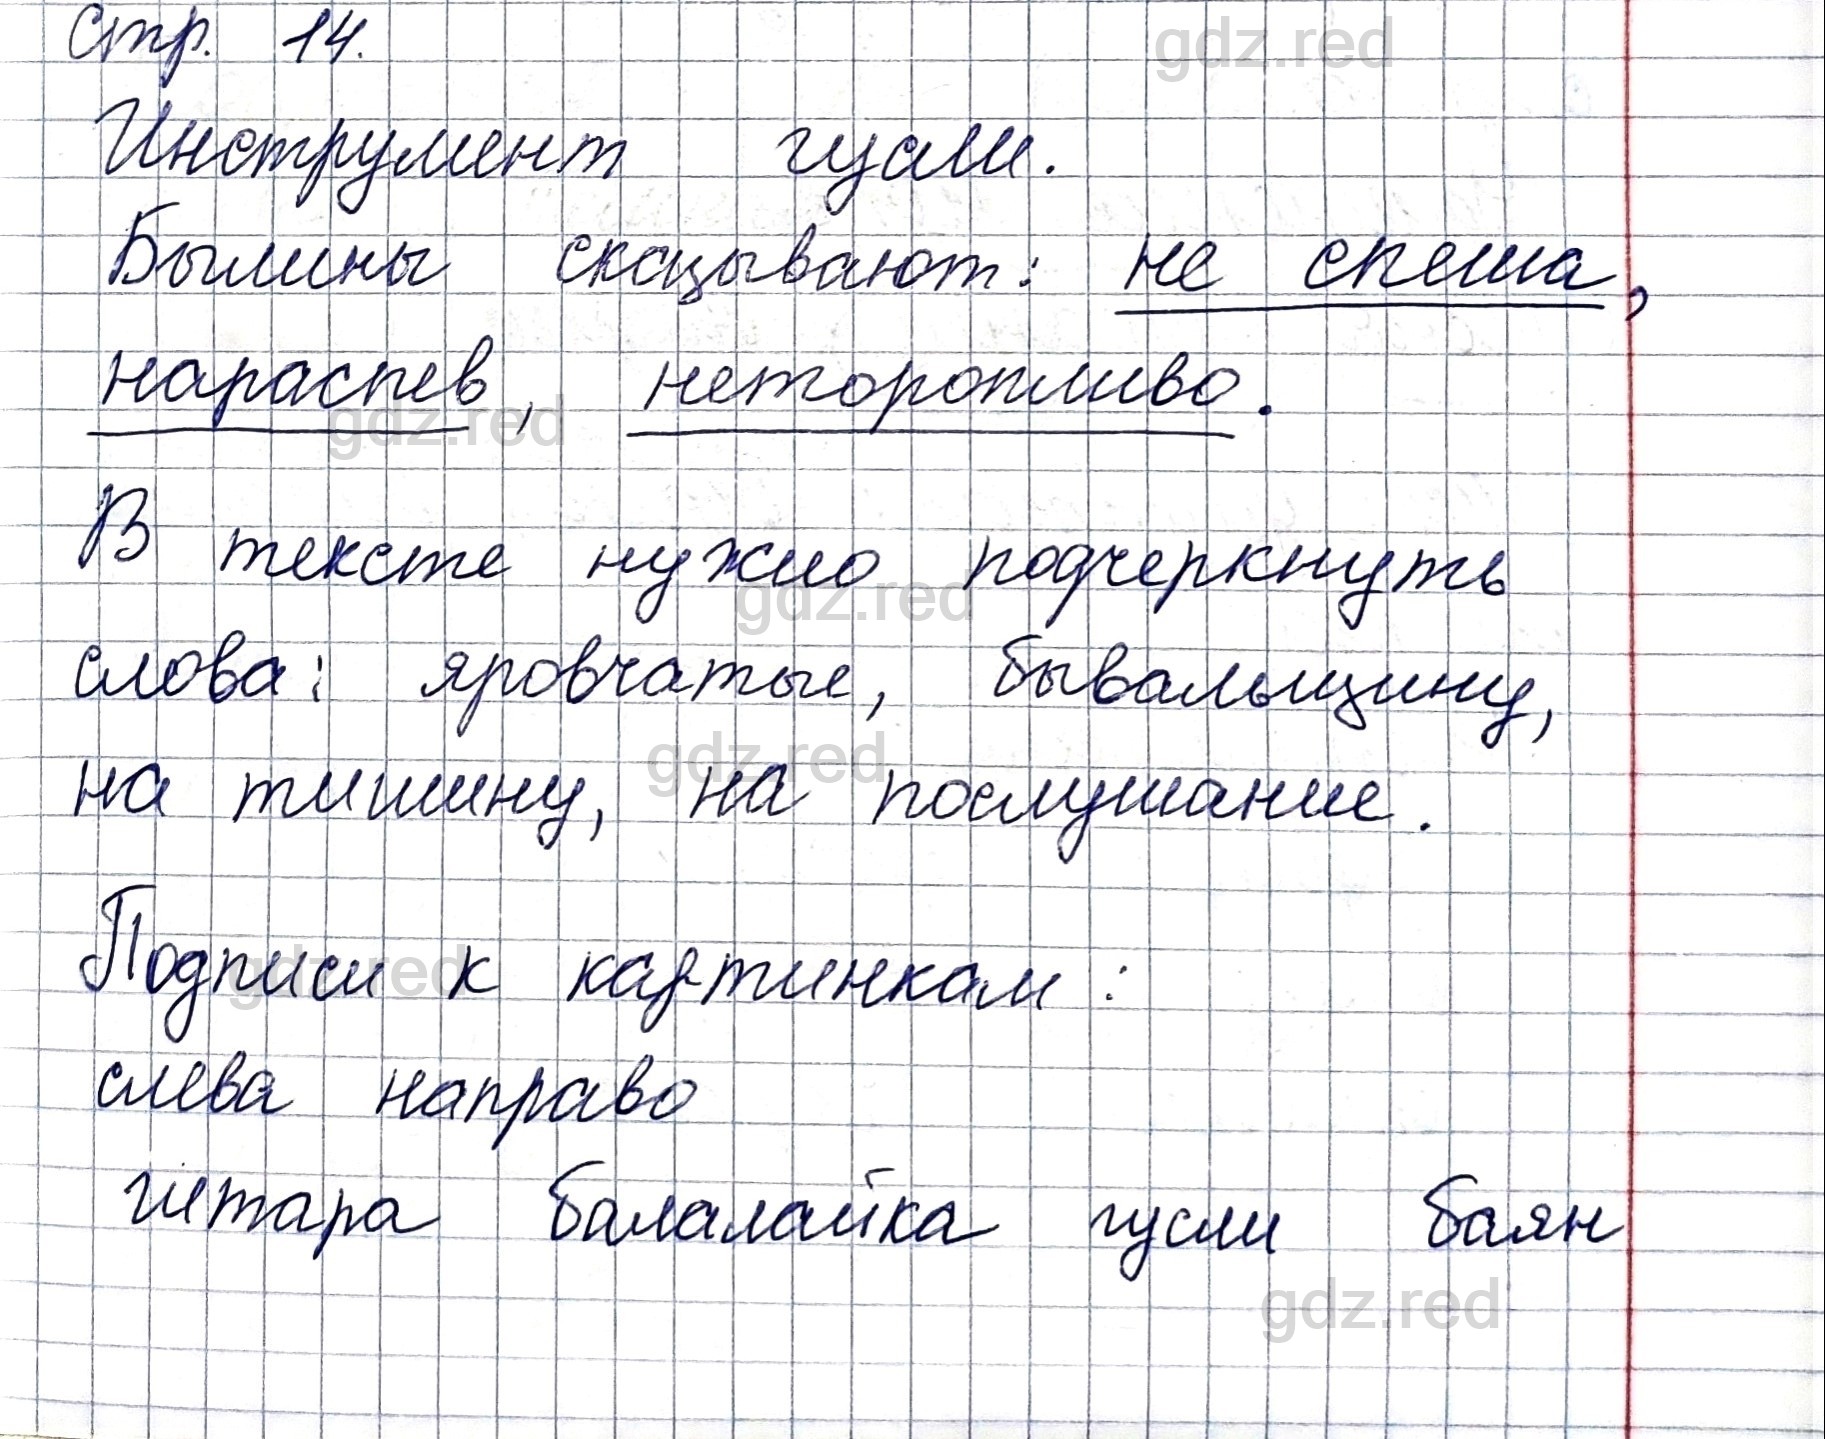 стр. 14.
gdz.red
Инструмент гусли.
Былины сказывают: не спеша,
нараспев, неторопливо.
gdz.red
В тексте нужно подчеркнуть
gdz.red
слова: яровчатые, бывальщину,
gdz.red
на тишину, на послушание.
Подписи к картинкам:
gdz.red
слева направо
гитара балалайка гусли баян
gdz.red